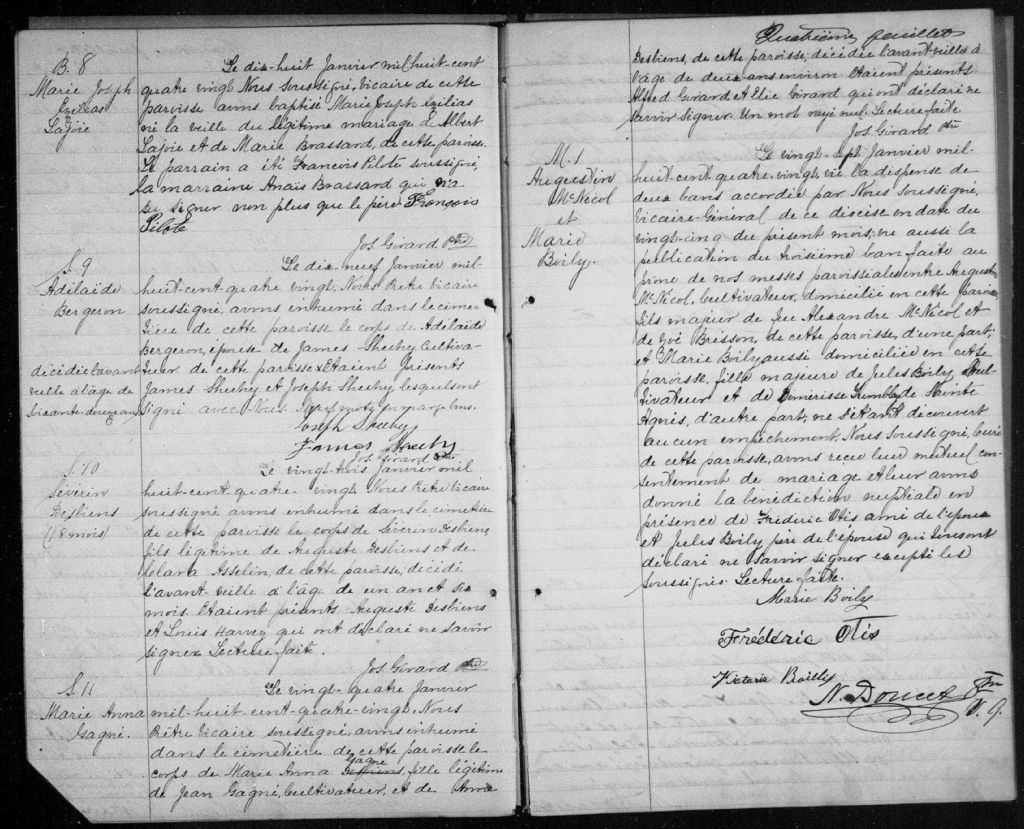 B. 8
Marie Joseph
Exilias
Lajoie
Le dix-huit Janvier mil huit-cent
quatre vingt Nous soussigné, Vicaire de cette
paroisse avons baptisé Marie Joseph Exilias
né la veille du légitime mariage d'Albert
Lajoie et de Marie Brassard, de cette paroisse.
Le parrain a été François Pilote soussigné,
la marraine Anaïs Brassard qui n'a
su signer non plus que le père. François
Pilote
Jos Girard Ptre
S. 9
Adélaide
Bergeron
décédée l'avant
veille à l'âge de
soixante-douze ans
Le dix neuf Janvier mil-
huit-cent quatre vingt, Nous Prêtre Vicaire
soussigné, avons inhumé dans le cime-
tière de cette paroisse le corps de Adélaide
Bergeron, épouse de James Sheehy Cultiva-
teur de cette paroisse x Etaient Présents
James Sheehy et Joseph Sheehy lesquels ont
signé avec Nous. mots en marge bons.
Joseph Sheehy
James Sheehy
Jos. Girard Ptre
S. 10
Séverin
Desbiens
(18 mois)
Le vingt-trois Janvier mil
huit-cent-quatre-vingt, Nous Prêtre Vicaire
soussigné avons inhumé dans le cimetière
de cette paroisse le corps de Séverin Desbiens,
fils légitime de Auguste Desbiens et de
Clara Asselin, de cette paroisse, décédé
l'avant-veille à l'âge de un an et six
mois. Etaient présents Auguste Desbiens
et Louis Harvey qui ont déclaré ne savoir
signer Lecture faite.
Jos Girard Ptre
S. 11
Marie Anna
Gagné.
Le vingt-quatre Janvier
mil-huit-cent-quatre-vingt, Nous
Prêtre Vicaire soussigné, avons inhumé
dans le cimetière de cette paroisse le
Gagné
corps de Marie Anna fille légitime
de Jean Gagné, Cultivateur, et de Anna
Quatrième feuillet
Desbiens, de cette paroisse, décédée l'avant-veille à
l'âge de deux ans environ Etaient présents
Alfred Girard et Ellie Girard qui ont déclaré ne
savoir signer. Un mot rayé nul. Lecture faite
Jos Girard Ptre
M. 1
Augustin
McNicol
et
Marie
Boily.
Le vingt-sept Janvier mil-
huit-cent-quatre-vingt, vu la dispense de
deux bans accordée par Nous Soussigné,
Vicaire-Général de ce diocèse en date du
vingt-cinq du présent mois; vu aussi la
publication du troisième ban faite au
prône de nos messes paroissiales entre Augustin
McNicol, Cultivateur, domicilié en cette paroisse,
fils majeur de feu Alexandre McNicol et
de Zoé Brisson, de cette paroisse, d'une part;
et Marie Boily aussi domiciliée en cette
paroisse, fille majeure de Jules Boily Cul-
tivateur et de Domerisse Tremblay de Sainte
Agnès, d'autre part; ne s'étant découvert
aucun empêchement, Nous soussigné, Curé
de cette paroisse, avons reçu leur mutuel con-
sentement de mariage et leur avons
donné la bénédiction nuptiale en
présence de Frédéric Otis ami de l'époux
et Jules Boily père de l'épouse qui tous ont
déclaré ne savoir signer excepté les
soussignés. Lecture faite.
Marie Boily
Frédéric Otis
Victoria Boilly
N. Doucet Ptre
V. G.